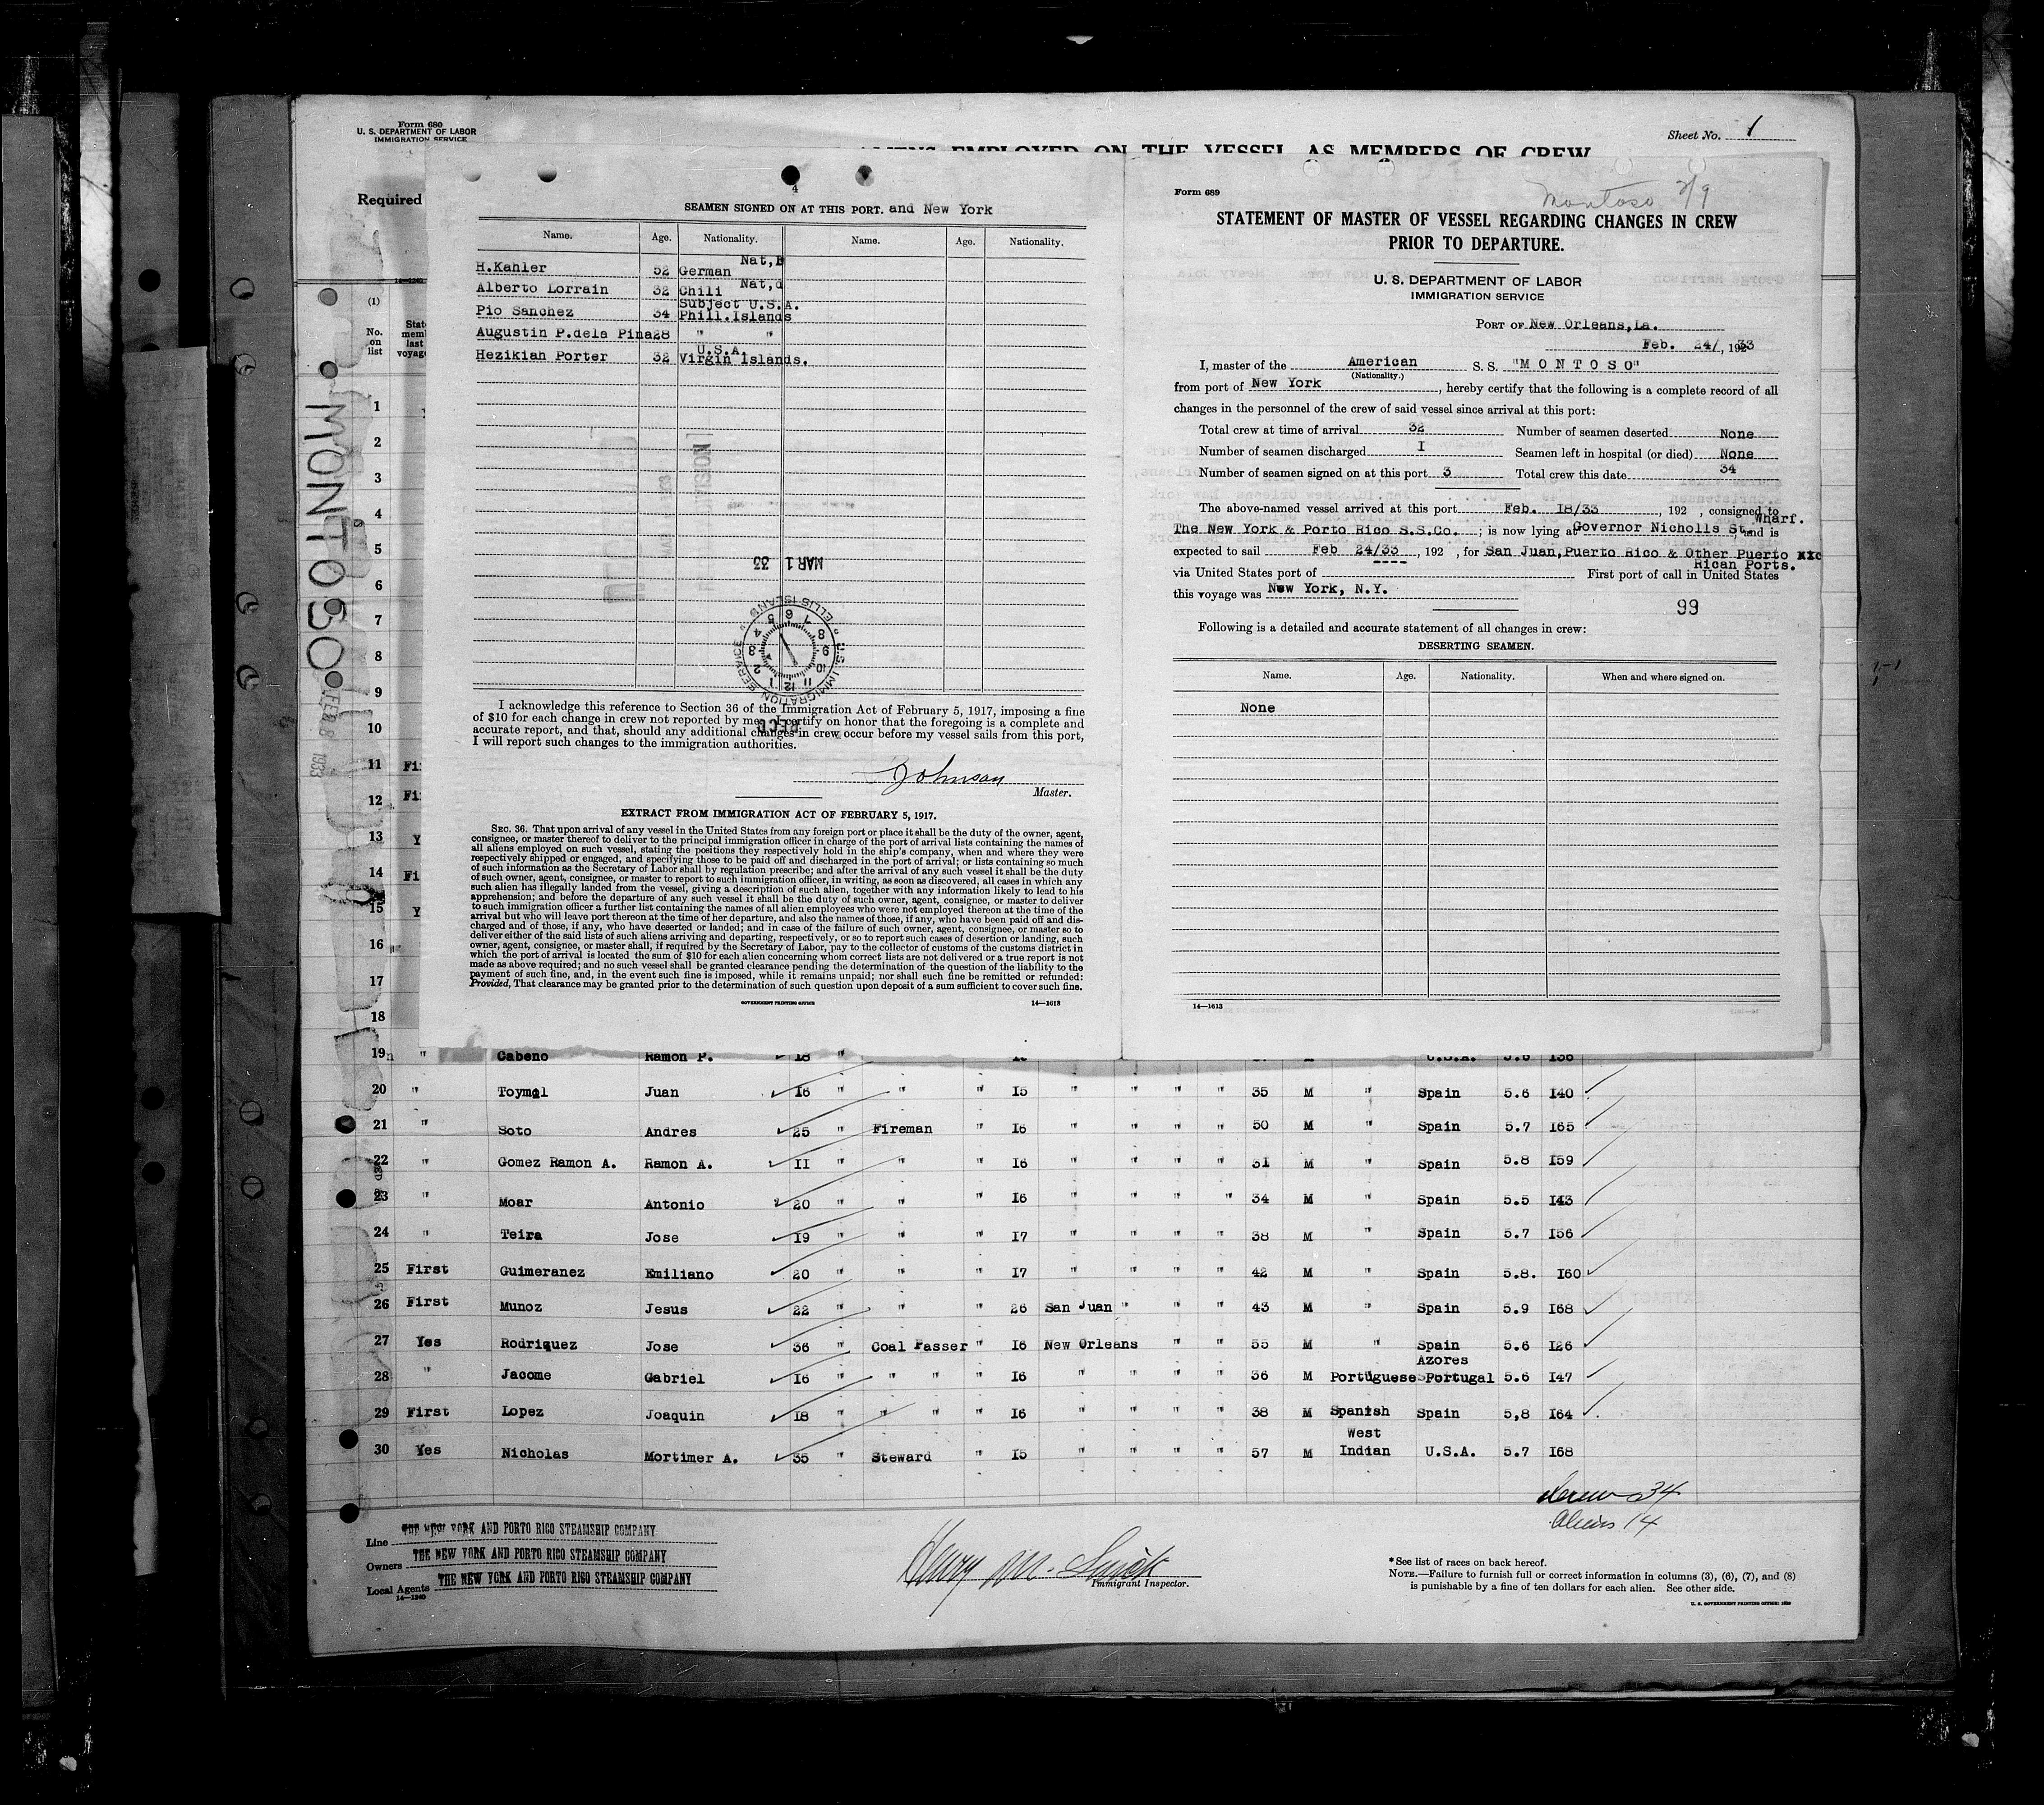 Form 680
U. S. DEPARTMENT OF LABOR
IMMIGRATION SERVICE
Sheet No. 1
EMPLOYED ON THE VESSEL AS MEMBERS OF CREW
Required
(1)
No. on list
MONTOSO
FEB 8 1933
1
2
3
4
5
6
7
8
9
10
11
12
13
14
15
16
17
18
4
SEAMEN SIGNED ON AT THIS PORT. and New York
Name. Age. Nationality. Name. Age. Nationality.
H.Kahler 52 German Nat,
Alberto Lorrain 32 Chili Nat,d
Pio Sanchez 34 Subject U.S.A. Phill.Islands
Augustin P.dela Pina 28 " "
Hezikiah Porter 32 U.S.A. Virgin Islands.
MAR 1 33
U.S. IMMIGRATION SERVICE ELLIS ISLAND
REC'D
I acknowledge this reference to Section 36 of the Immigration Act of February 5, 1917, imposing a fine
of $10 for each change in crew not reported by me. I certify on honor that the foregoing is a complete and
accurate report, and that, should any additional changes in crew occur before my vessel sails from this port,
I will report such changes to the immigration authorities.
Johnson
Master.
EXTRACT FROM IMMIGRATION ACT OF FEBRUARY 5, 1917.
SEC. 36. That upon arrival of any vessel in the United States from any foreign port or place it shall be the duty of the owner, agent,
consignee, or master thereof to deliver to the principal immigration officer in charge of the port of arrival lists containing the names of
all aliens employed on such vessel, stating the positions they respectively hold in the ship's company, when and where they were
respectively shipped or engaged, and specifying those to be paid off and discharged in the port of arrival; or lists containing so much
of such information as the Secretary of Labor shall by regulation prescribe; and after the arrival of any such vessel it shall be the duty
of such owner, agent, consignee, or master to report to such immigration officer, in writing, as soon as discovered, all cases in which any
such alien has illegally landed from the vessel, giving a description of such alien, together with any information likely to lead to his
apprehension; and before the departure of any such vessel it shall be the duty of such owner, agent, consignee, or master to deliver
to such immigration officer a further list containing the names of all alien employees who were not employed thereon at the time of the
arrival but who will leave port thereon at the time of her departure, and also the names of those, if any, who have been paid off and dis-
charged and of those, if any, who have deserted or landed; and in case of the failure of such owner, agent, consignee, or master so to
deliver either of the said lists of such aliens arriving and departing, respectively, or so to report such cases of desertion or landing, such
owner, agent, consignee, or master shall, if required by the Secretary of Labor, pay to the collector of customs of the customs district in
which the port of arrival is located the sum of $10 for each alien concerning whom correct lists are not delivered or a true report is not
made as above required; and no such vessel shall be granted clearance pending the determination of the question of the liability to the
payment of such fine, and, in the event such fine is imposed, while it remains unpaid; nor shall such fine be remitted or refunded:
Provided, That clearance may be granted prior to the determination of such question upon deposit of a sum sufficient to cover such fine.
GOVERNMENT PRINTING OFFICE 14—1613
Form 689
Montoso 2/9
STATEMENT OF MASTER OF VESSEL REGARDING CHANGES IN CREW
PRIOR TO DEPARTURE.
U. S. DEPARTMENT OF LABOR
IMMIGRATION SERVICE
PORT OF New Orleans,La.
Feb. 24/, 1933
I, master of the American S. S. "M O N T O S O"
(Nationality.)
from port of New York, hereby certify that the following is a complete record of all
changes in the personnel of the crew of said vessel since arrival at this port:
Total crew at time of arrival 32 Number of seamen deserted None
Number of seamen discharged I Seamen left in hospital (or died) None
Number of seamen signed on at this port 3 Total crew this date 34
The above-named vessel arrived at this port Feb. 18/33, 192 , consigned to
The New York & Porto Rico S.S.Co. ; is now lying at Governor Nicholls St, Wharf. and is
expected to sail Feb 24/33, 192 , for San Juan,Puerto Rico & Other Puerto
Rican Ports.
via United States port of First port of call in United States
this voyage was New York, N.Y.
99
Following is a detailed and accurate statement of all changes in crew:
DESERTING SEAMEN.
Name. Age. Nationality. When and where signed on.
None
14—1613
19 " Cabeno Ramon P. 18 " U.S.A. 5.6 156
20 " Toymol Juan 16 " " " 15 " " " " 35 M " Spain 5.6 140
21 " Soto Andres 25 " Fireman " 16 " " " " 50 M " Spain 5.7 165
22 " Gomez Ramon A. Ramon A. 11 " " " 16 " " " " 31 M " Spain 5.8 159
23 " Moar Antonio 20 " " " 16 " " " " 34 M " Spain 5.5 143
24 " Teira Jose 19 " " " 17 " " " " 38 M " Spain 5.7 156
25 First Guimeranez Emiliano 20 " " " 17 " " " " 42 M " Spain 5.8. 160
26 First Munoz Jesus 22 " " " 26 San Juan " " " 43 M " Spain 5.9 168
27 Yes Rodriquez Jose 36 " Coal Passer " 16 New Orleans " " 55 M " Spain 5.6 126
28 " Jacome Gabriel 16 " " " " 16 " " " " 36 M Portuguese Azores Portugal 5.6 147
29 First Lopez Joaquin 18 " " " " 16 " " " " 38 M Spanish Spain 5,8 164
30 Yes Nicholas Mortimer A. 35 " Steward " 15 " " " " 57 M West Indian U.S.A. 5.7 168
Crew 34
Aliens 14
Line THE NEW YORK AND PORTO RICO STEAMSHIP COMPANY
Owners THE NEW YORK AND PORTO RICO STEAMSHIP COMPANY
Local Agents THE NEW YORK AND PORTO RICO STEAMSHIP COMPANY
14—1240
Henry M. Smith
Immigrant Inspector.
*See list of races on back hereof.
NOTE.—Failure to furnish full or correct information in columns (3), (6), (7), and (8)
is punishable by a fine of ten dollars for each alien. See other side.
U. S. GOVERNMENT PRINTING OFFICE